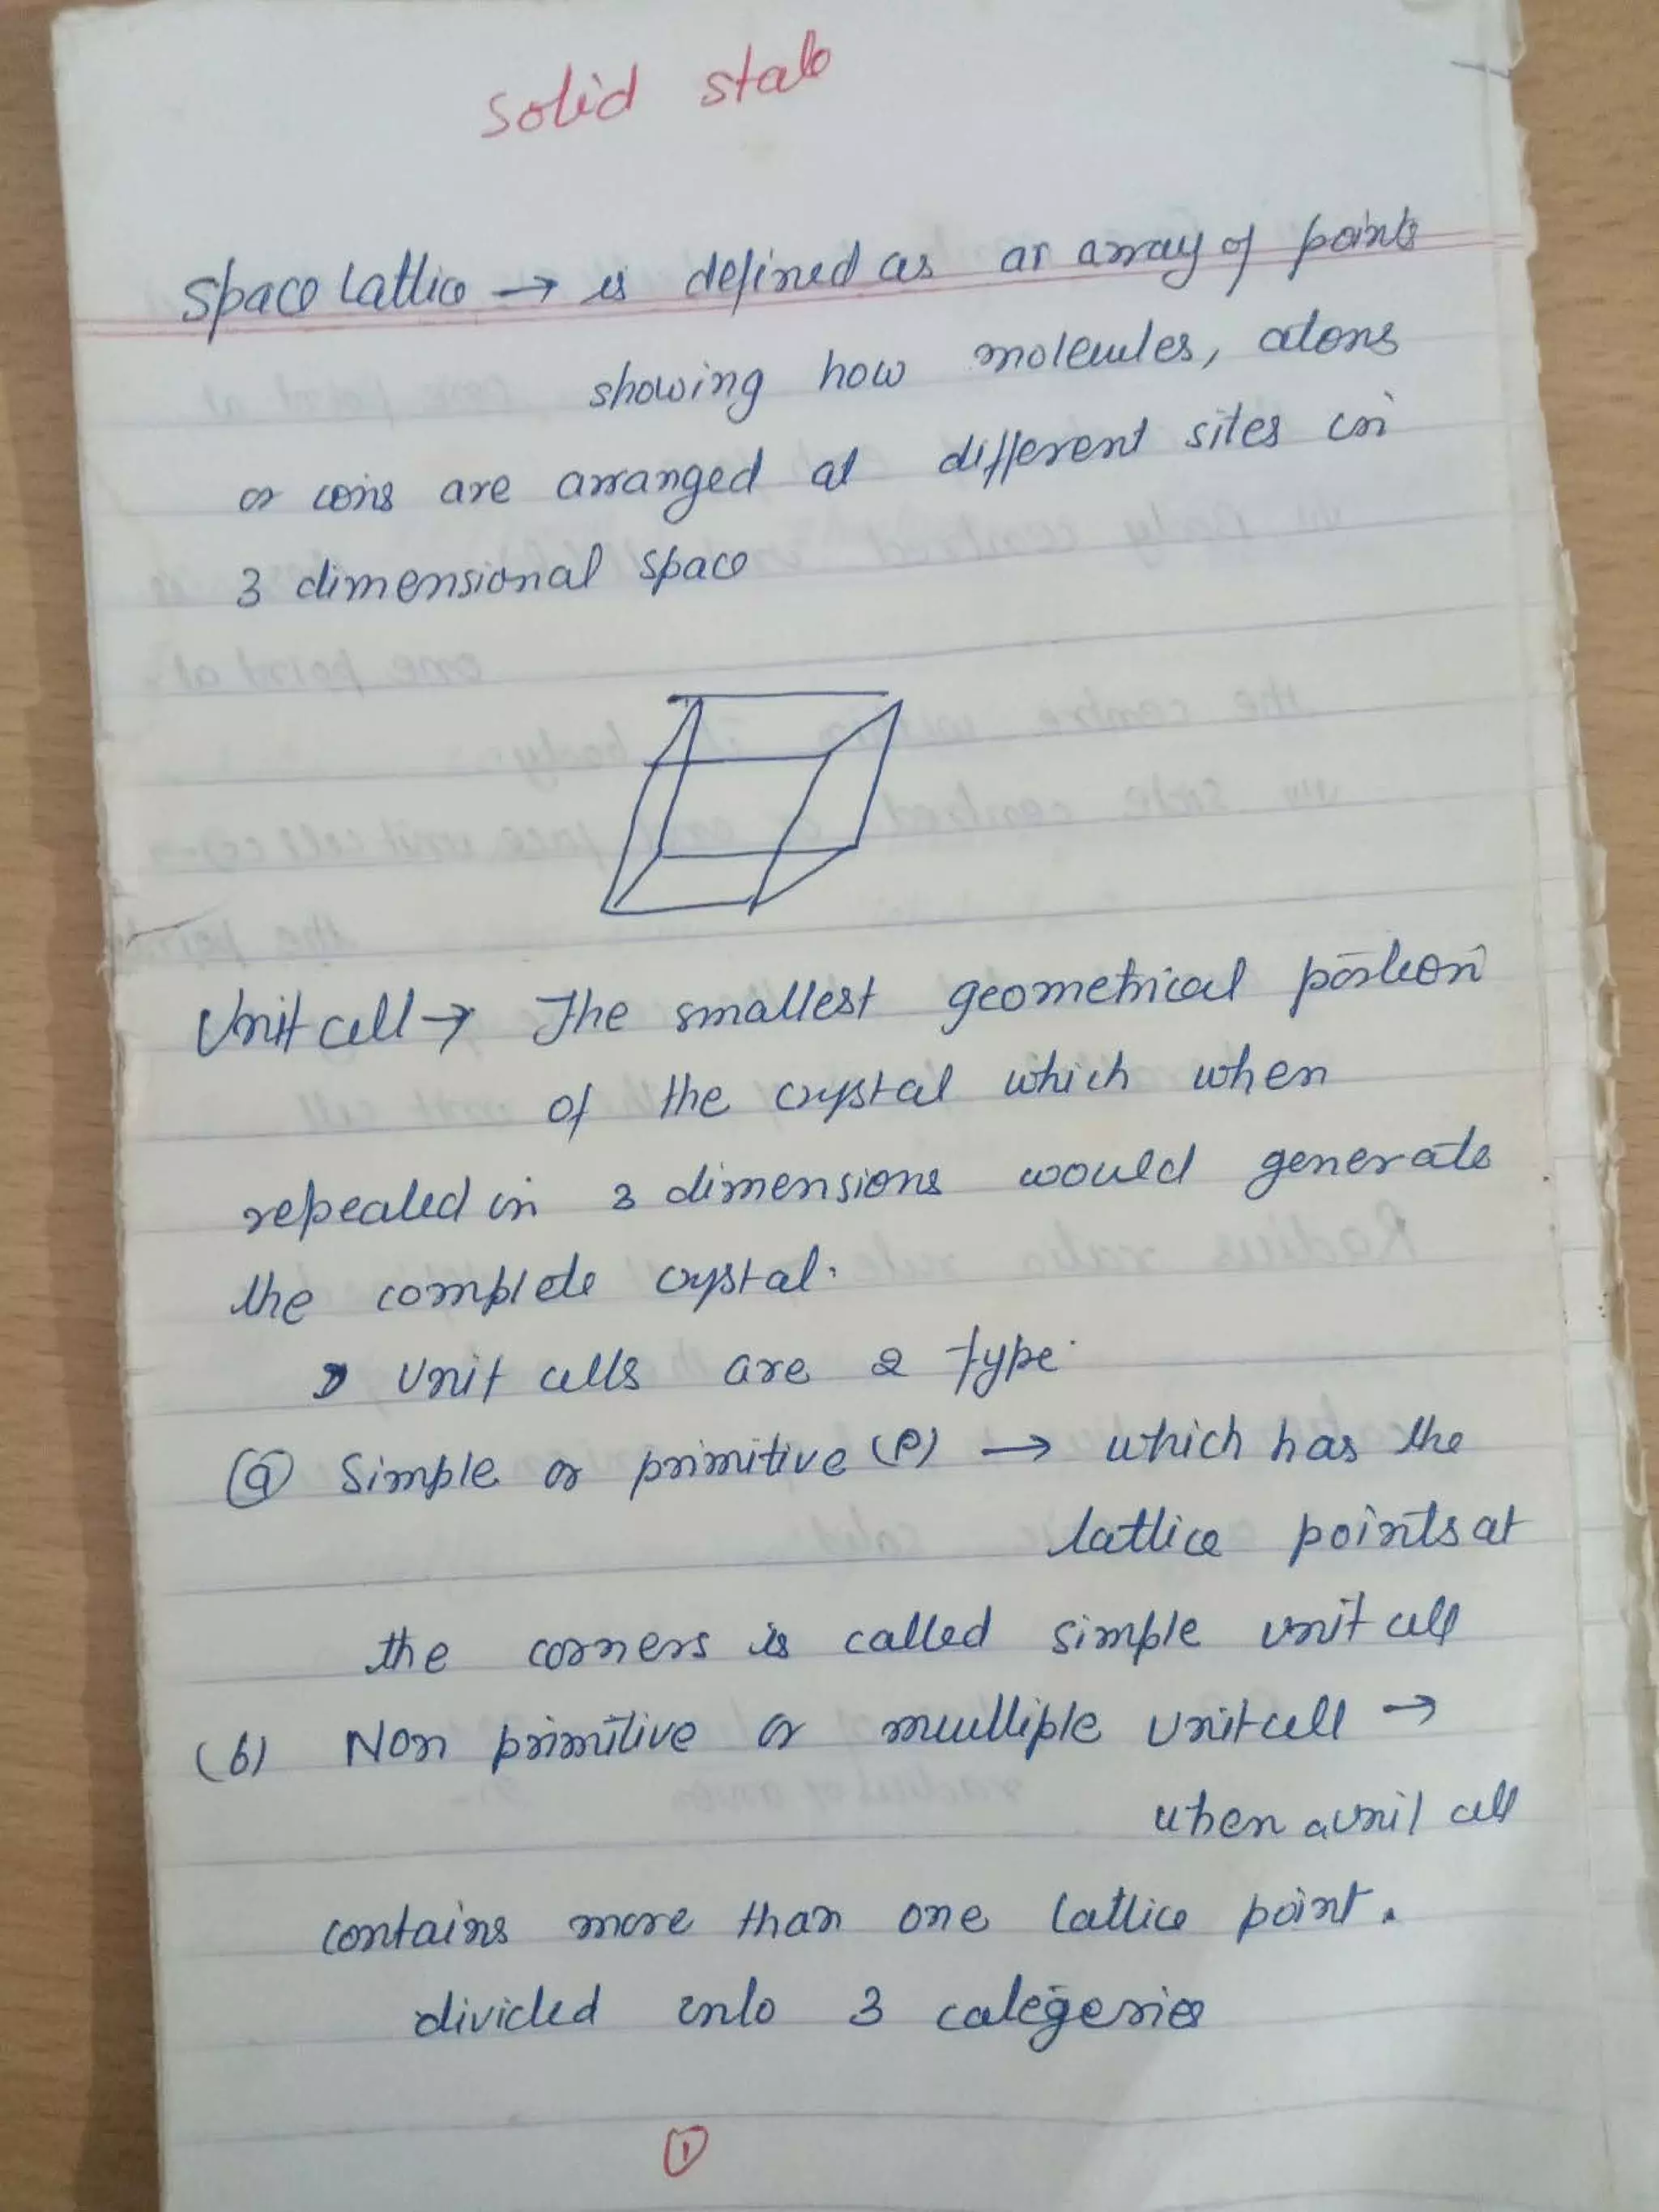 Solid state
Space Lattice → is defined as an array of points
showing how molecules, atoms
or ions are arranged at different sites in
3 dimensional space
Unit cell → The smallest geometrical portion
of the crystal which when
repeated in 3 dimensions would generate
the complete crystal.
Unit cells are 2 type.
(a) Simple or primitive (P) → which has the
lattice points at
the corners is called simple unit cell
(b) Non primitive or multiple unit cell →
when a unit cell
contains more than one lattice point.
divided into 3 categeries
1